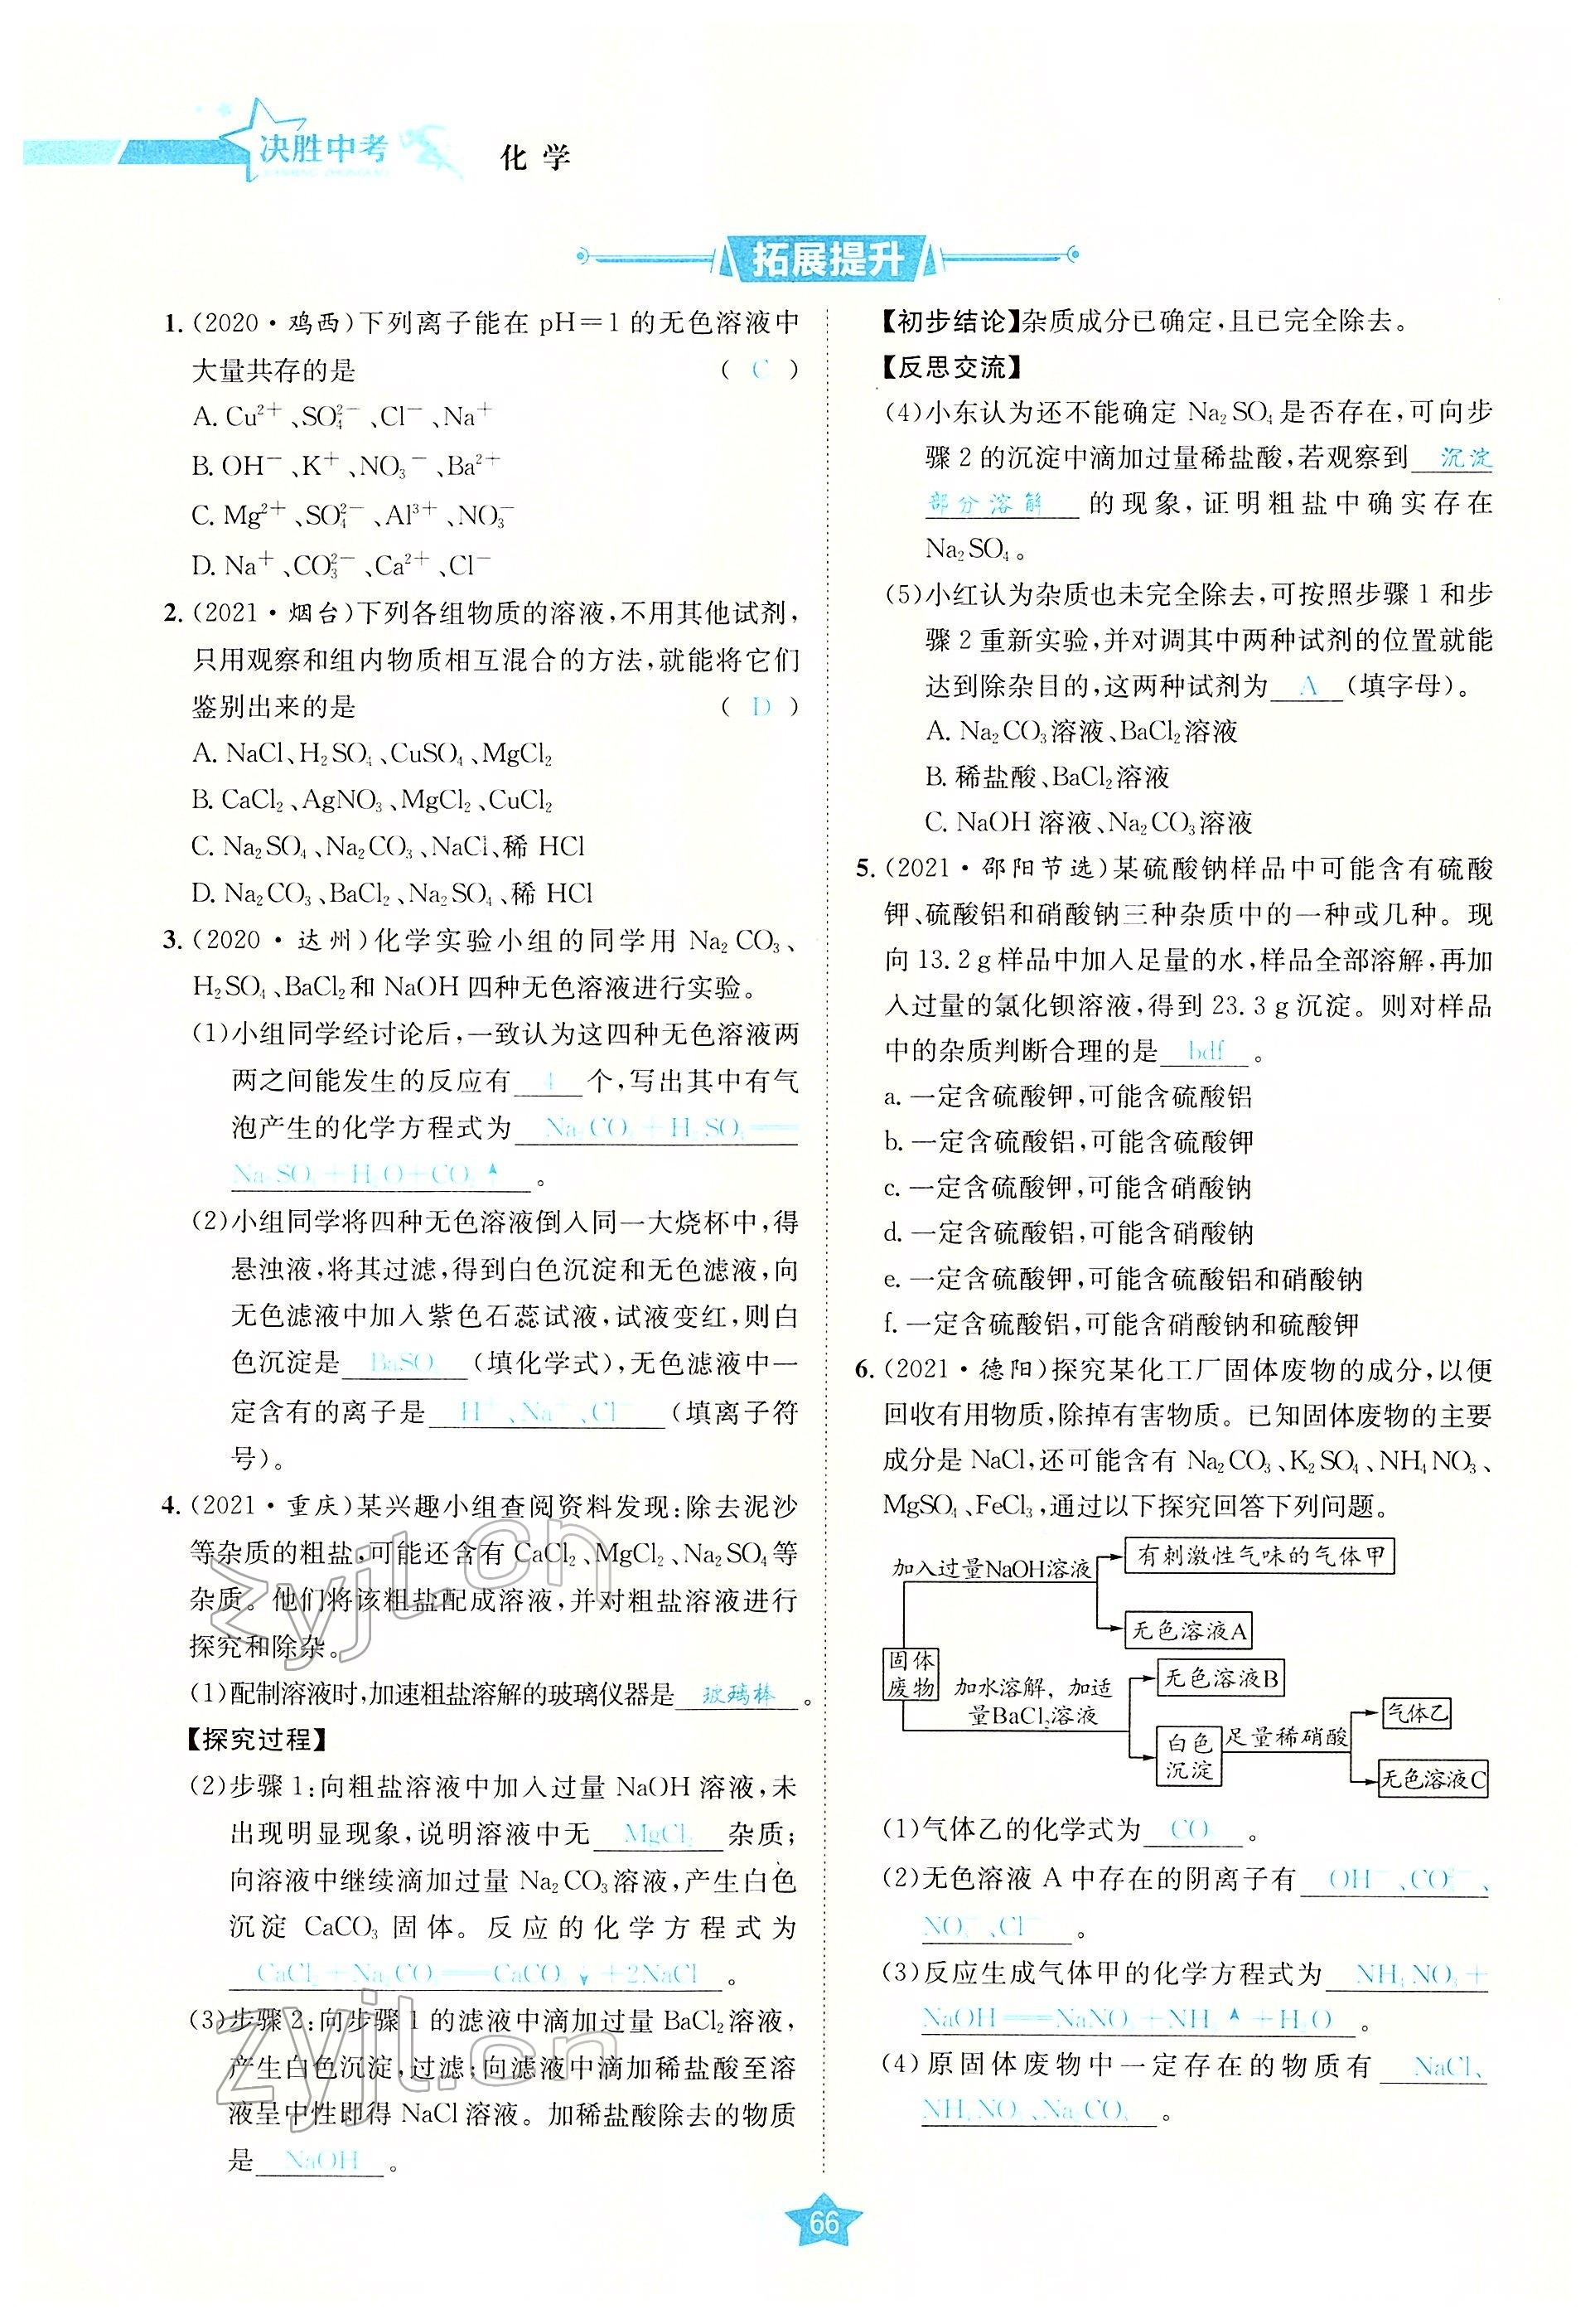 决胜中考
化学
拓展提升
1.(2020·鸡西)下列离子能在 pH=1 的无色溶液中
大量共存的是 ( C )
A. Cu²⁺、SO₄²⁻、Cl⁻、Na⁺
B. OH⁻、K⁺、NO₃⁻、Ba²⁺
C. Mg²⁺、SO₄²⁻、Al³⁺、NO₃⁻
D. Na⁺、CO₃²⁻、Ca²⁺、Cl⁻
2.(2021·烟台)下列各组物质的溶液,不用其他试剂,
只用观察和组内物质相互混合的方法,就能将它们
鉴别出来的是 ( D )
A. NaCl、H₂SO₄、CuSO₄、MgCl₂
B. CaCl₂、AgNO₃、MgCl₂、CuCl₂
C. Na₂SO₄、Na₂CO₃、NaCl、稀 HCl
D. Na₂CO₃、BaCl₂、Na₂SO₄、稀 HCl
3.(2020·达州)化学实验小组的同学用 Na₂CO₃、
H₂SO₄、BaCl₂和 NaOH 四种无色溶液进行实验。
(1)小组同学经讨论后,一致认为这四种无色溶液两
两之间能发生的反应有 4 个,写出其中有气
泡产生的化学方程式为 Na₂CO₃+H₂SO₄══
Na₂SO₄+H₂O+CO₂↑ 。
(2)小组同学将四种无色溶液倒入同一大烧杯中,得
悬浊液,将其过滤,得到白色沉淀和无色滤液,向
无色滤液中加入紫色石蕊试液,试液变红,则白
色沉淀是 BaSO₄ (填化学式),无色滤液中一
定含有的离子是 H⁺、Na⁺、Cl⁻ (填离子符
号)。
4.(2021·重庆)某兴趣小组查阅资料发现:除去泥沙
等杂质的粗盐,可能还含有 CaCl₂、MgCl₂、Na₂SO₄等
杂质。他们将该粗盐配成溶液,并对粗盐溶液进行
探究和除杂。
(1)配制溶液时,加速粗盐溶解的玻璃仪器是 玻璃棒 。
【探究过程】
(2)步骤 1:向粗盐溶液中加入过量 NaOH 溶液,未
出现明显现象,说明溶液中无 MgCl₂ 杂质;
向溶液中继续滴加过量 Na₂CO₃溶液,产生白色
沉淀 CaCO₃ 固体。反应的化学方程式为
CaCl₂+Na₂CO₃══CaCO₃↓+2NaCl 。
(3)步骤 2:向步骤 1 的滤液中滴加过量 BaCl₂溶液,
产生白色沉淀,过滤;向滤液中滴加稀盐酸至溶
液呈中性即得 NaCl 溶液。加稀盐酸除去的物质
是 NaOH 。
【初步结论】杂质成分已确定,且已完全除去。
【反思交流】
(4)小东认为还不能确定 Na₂SO₄是否存在,可向步
骤 2 的沉淀中滴加过量稀盐酸,若观察到 沉淀
部分溶解 的现象,证明粗盐中确实存在
Na₂SO₄。
(5)小红认为杂质也未完全除去,可按照步骤 1 和步
骤 2 重新实验,并对调其中两种试剂的位置就能
达到除杂目的,这两种试剂为 A (填字母)。
A. Na₂CO₃溶液、BaCl₂溶液
B. 稀盐酸、BaCl₂溶液
C. NaOH 溶液、Na₂CO₃溶液
5.(2021·邵阳节选)某硫酸钠样品中可能含有硫酸
钾、硫酸铝和硝酸钠三种杂质中的一种或几种。现
向 13.2 g 样品中加入足量的水,样品全部溶解,再加
入过量的氯化钡溶液,得到 23.3 g 沉淀。则对样品
中的杂质判断合理的是 bdf 。
a. 一定含硫酸钾,可能含硫酸铝
b. 一定含硫酸铝,可能含硫酸钾
c. 一定含硫酸钾,可能含硝酸钠
d. 一定含硫酸铝,可能含硝酸钠
e. 一定含硫酸钾,可能含硫酸铝和硝酸钠
f. 一定含硫酸铝,可能含硝酸钠和硫酸钾
6.(2021·德阳)探究某化工厂固体废物的成分,以便
回收有用物质,除掉有害物质。已知固体废物的主要
成分是 NaCl,还可能含有 Na₂CO₃、K₂SO₄、NH₄NO₃、
MgSO₄、FeCl₃,通过以下探究回答下列问题。
加入过量NaOH溶液
有刺激性气味的气体甲
无色溶液A
固体
废物
加水溶解,加适
量BaCl₂溶液
无色溶液B
白色
沉淀
足量稀硝酸
气体乙
无色溶液C
(1)气体乙的化学式为 CO₂ 。
(2)无色溶液 A 中存在的阴离子有 OH⁻、CO₃²⁻、
NO₃⁻、Cl⁻ 。
(3)反应生成气体甲的化学方程式为 NH₄NO₃+
NaOH══NaNO₃+NH₃↑+H₂O 。
(4)原固体废物中一定存在的物质有 NaCl、
NH₄NO₃、Na₂CO₃ 。
66
zyjl.cn
zyjl.cn